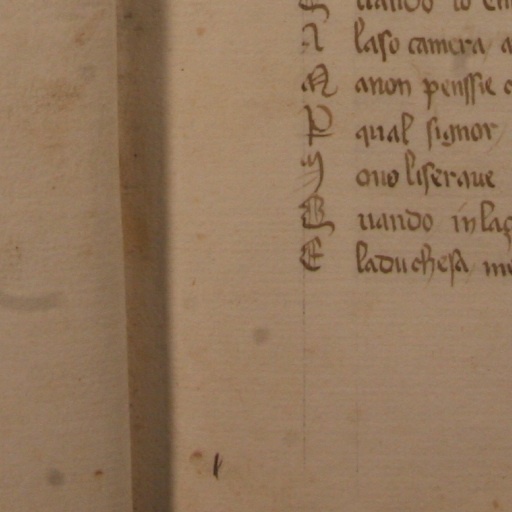 Quando io en
N laso camera a
M anon penssie
P qual signor
N ouo liserave
Quando in laç
E laduchesa me